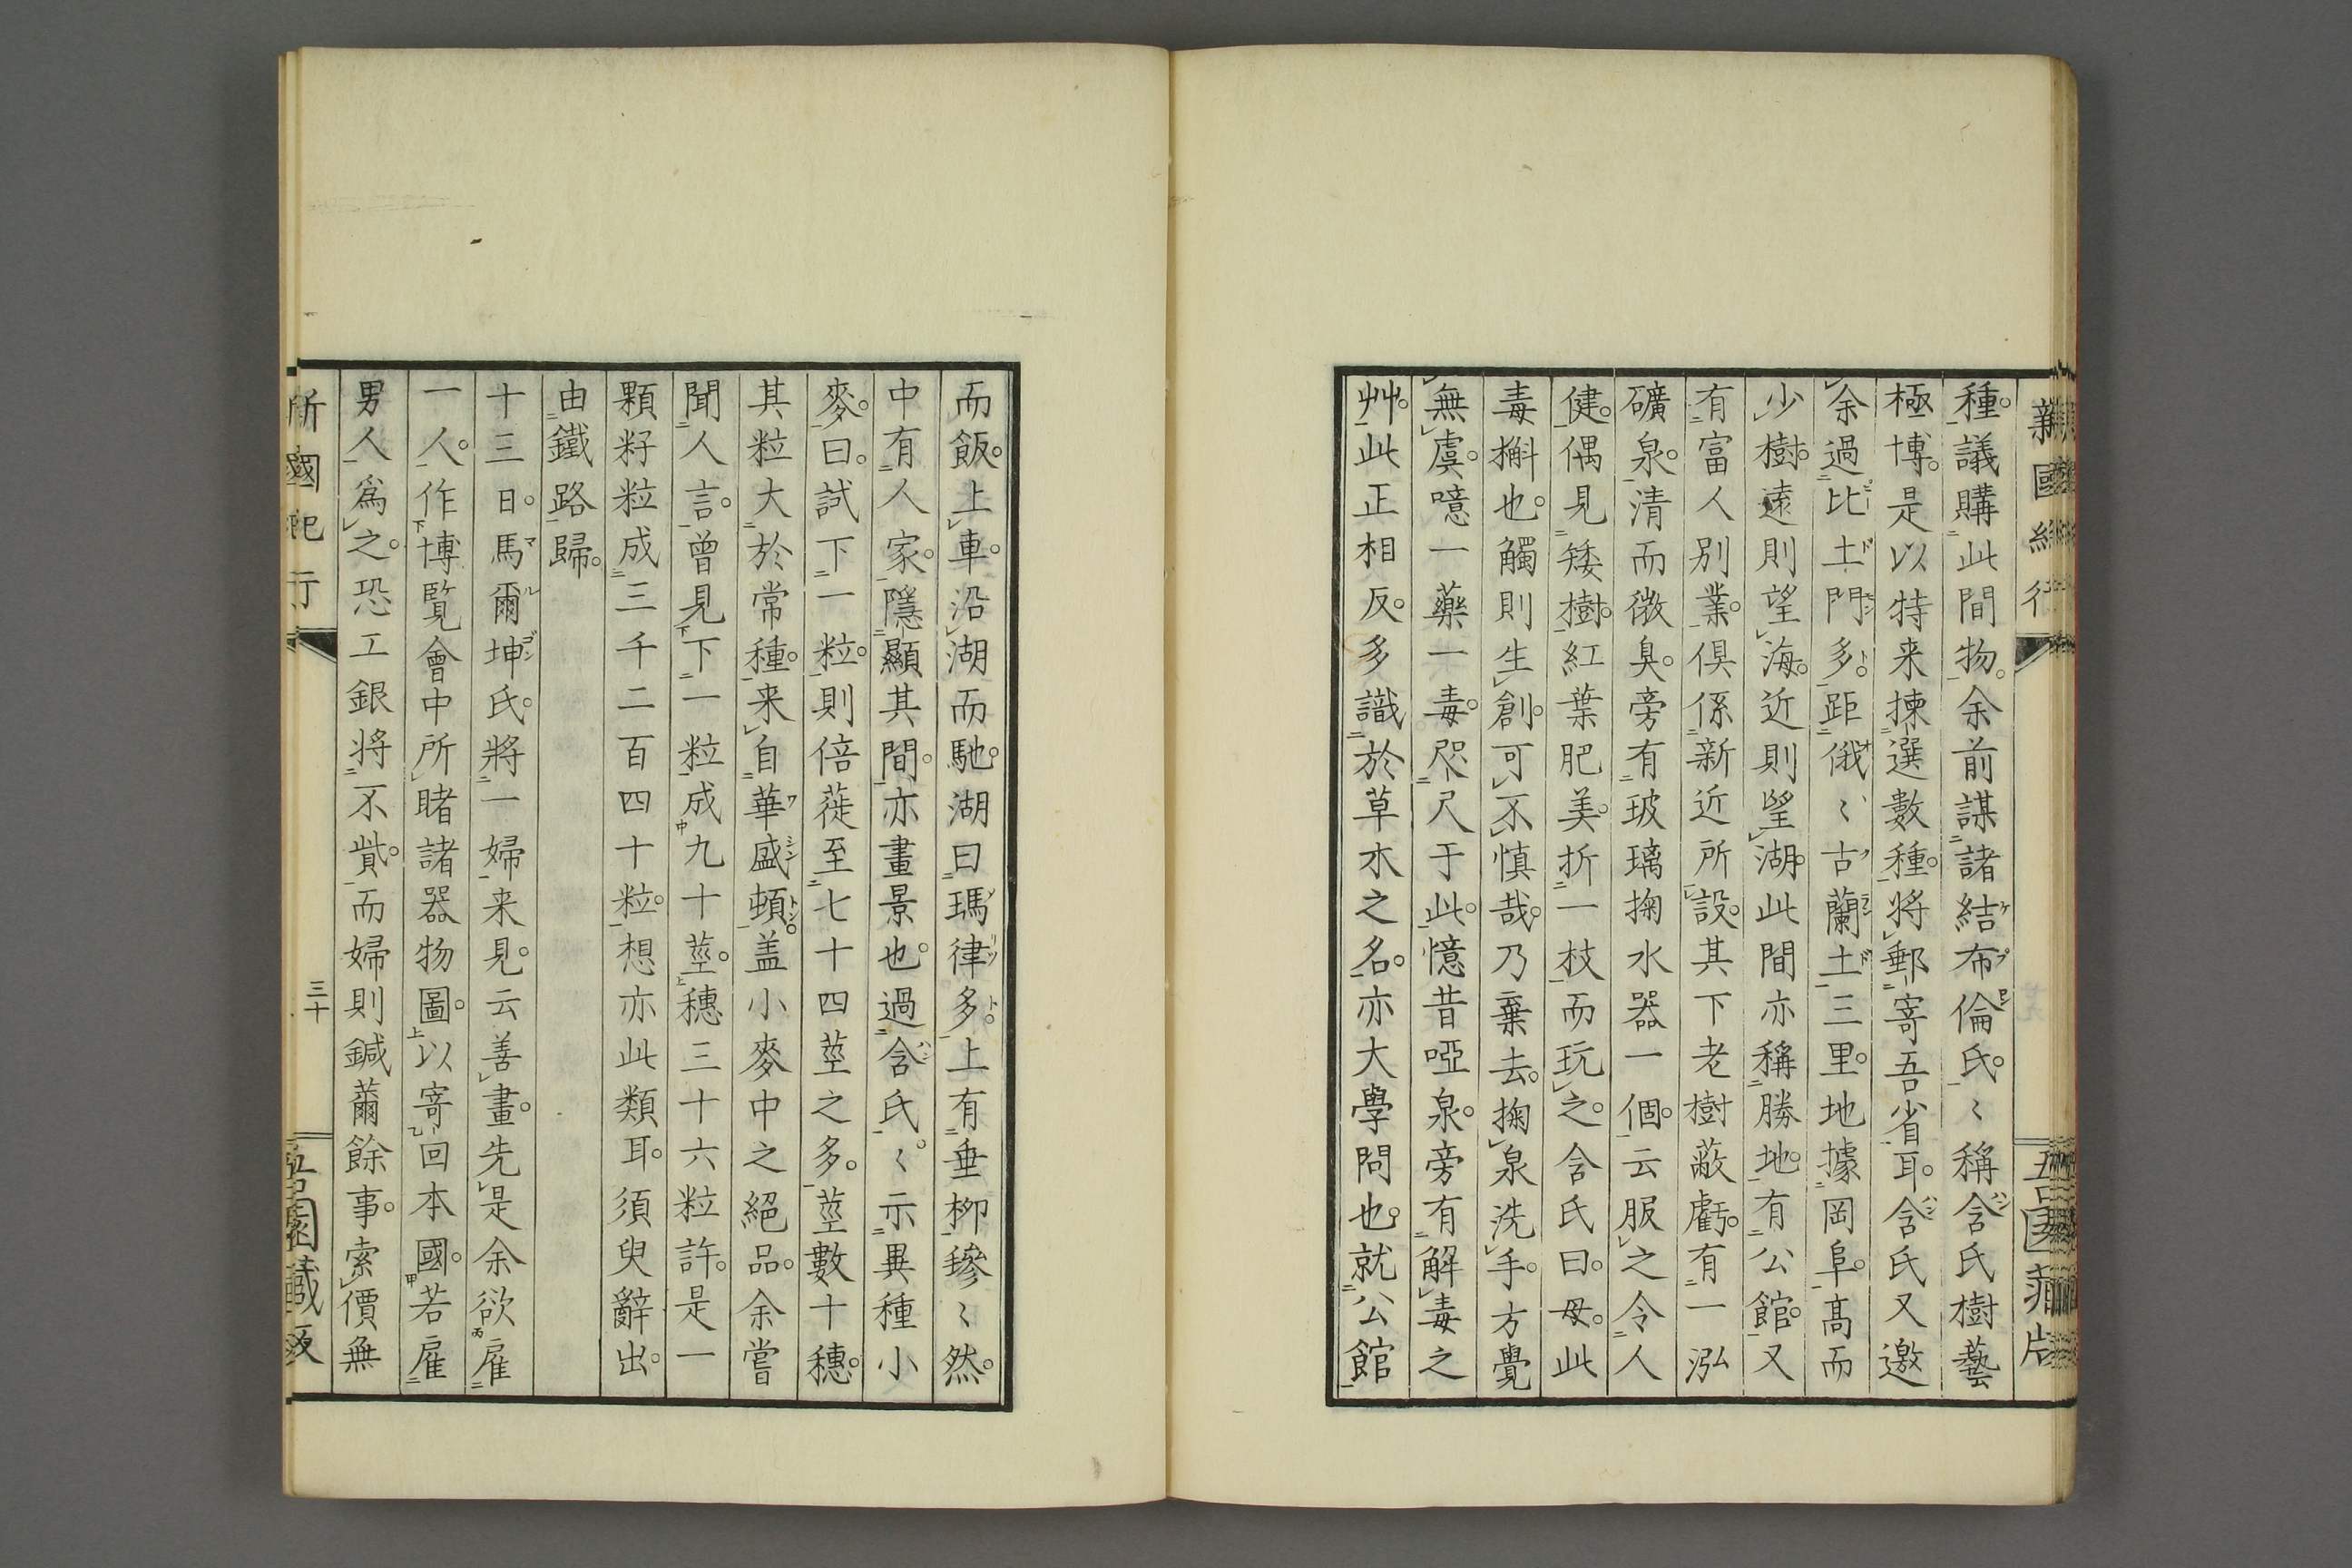 種。議購此間物。余前謀諸結布倫氏。〻稱含氏樹藝
極博。是以特来揀選數種。將郵寄吾省耳。含氏又邀
余過比土門多。距俄〻古蘭土三里。地據岡阜。髙而
少樹。遠則望海。近則望湖。此間亦稱勝地。有公館。又
有富人別業。俱係新近所設。其下老樹蔽虧。有一泓
礦泉。清而微臭。旁有玻璃掬水器一個。云服之令人
健。偶見矮樹。紅葉肥美。折一枝而玩之。含氏曰。毋。此
毒槲也。觸則生創。可不慎哉。乃棄去。掬泉洗手。方覺
無虞。噫一藥一毒。咫尺于此。憶昔啞泉。旁有解毒之
艸。此正相反。多識於草木之名。亦大學問也。就公館
而飯。上車。沿湖而馳。湖曰瑪律多。上有垂柳鬖〻然。
中有人家。隱顯其間。亦畫景也。過含氏。〻示異種小
麥。曰。試下一粒。則倍蓰至七十四莖之多。莖數十穗。
其粒大於常種。来自華盛頓。盖小麥中之絕品。余嘗
聞人言。曾見下一粒成九十莖。穗三十六粒許。是一
顆籽粒成三千二百四十粒。想亦此類耳。須臾辭出。
由鐵路歸。
十三日。馬爾坤氏。將一婦来見。云善畫。先是余欲雇
一人。作博覧會中所睹諸器物圖。以寄回本國。若雇
男人為之。恐工銀將不貲。而婦則鍼黹餘事。索價無
三十